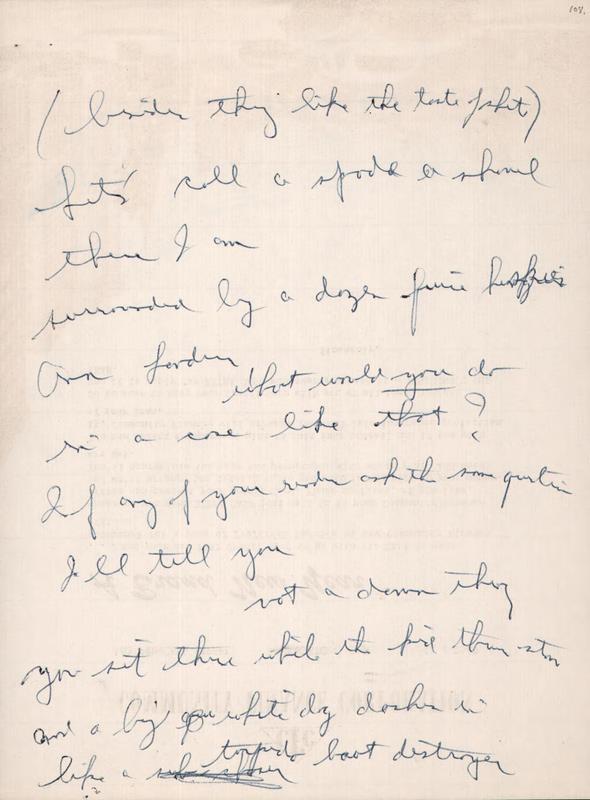 108.
( besides they like the taste of shit )
Let's call a spade a shovel
there I am
surrounded by a dozen furie huskies
Ann Landers
what would you do
in a case like that ?
If any of your readers ask the same question
I'll tell you
not a damn thing
you sit there while the kids throw
and a big white dog dashes in
like a torpedo boat destroyer